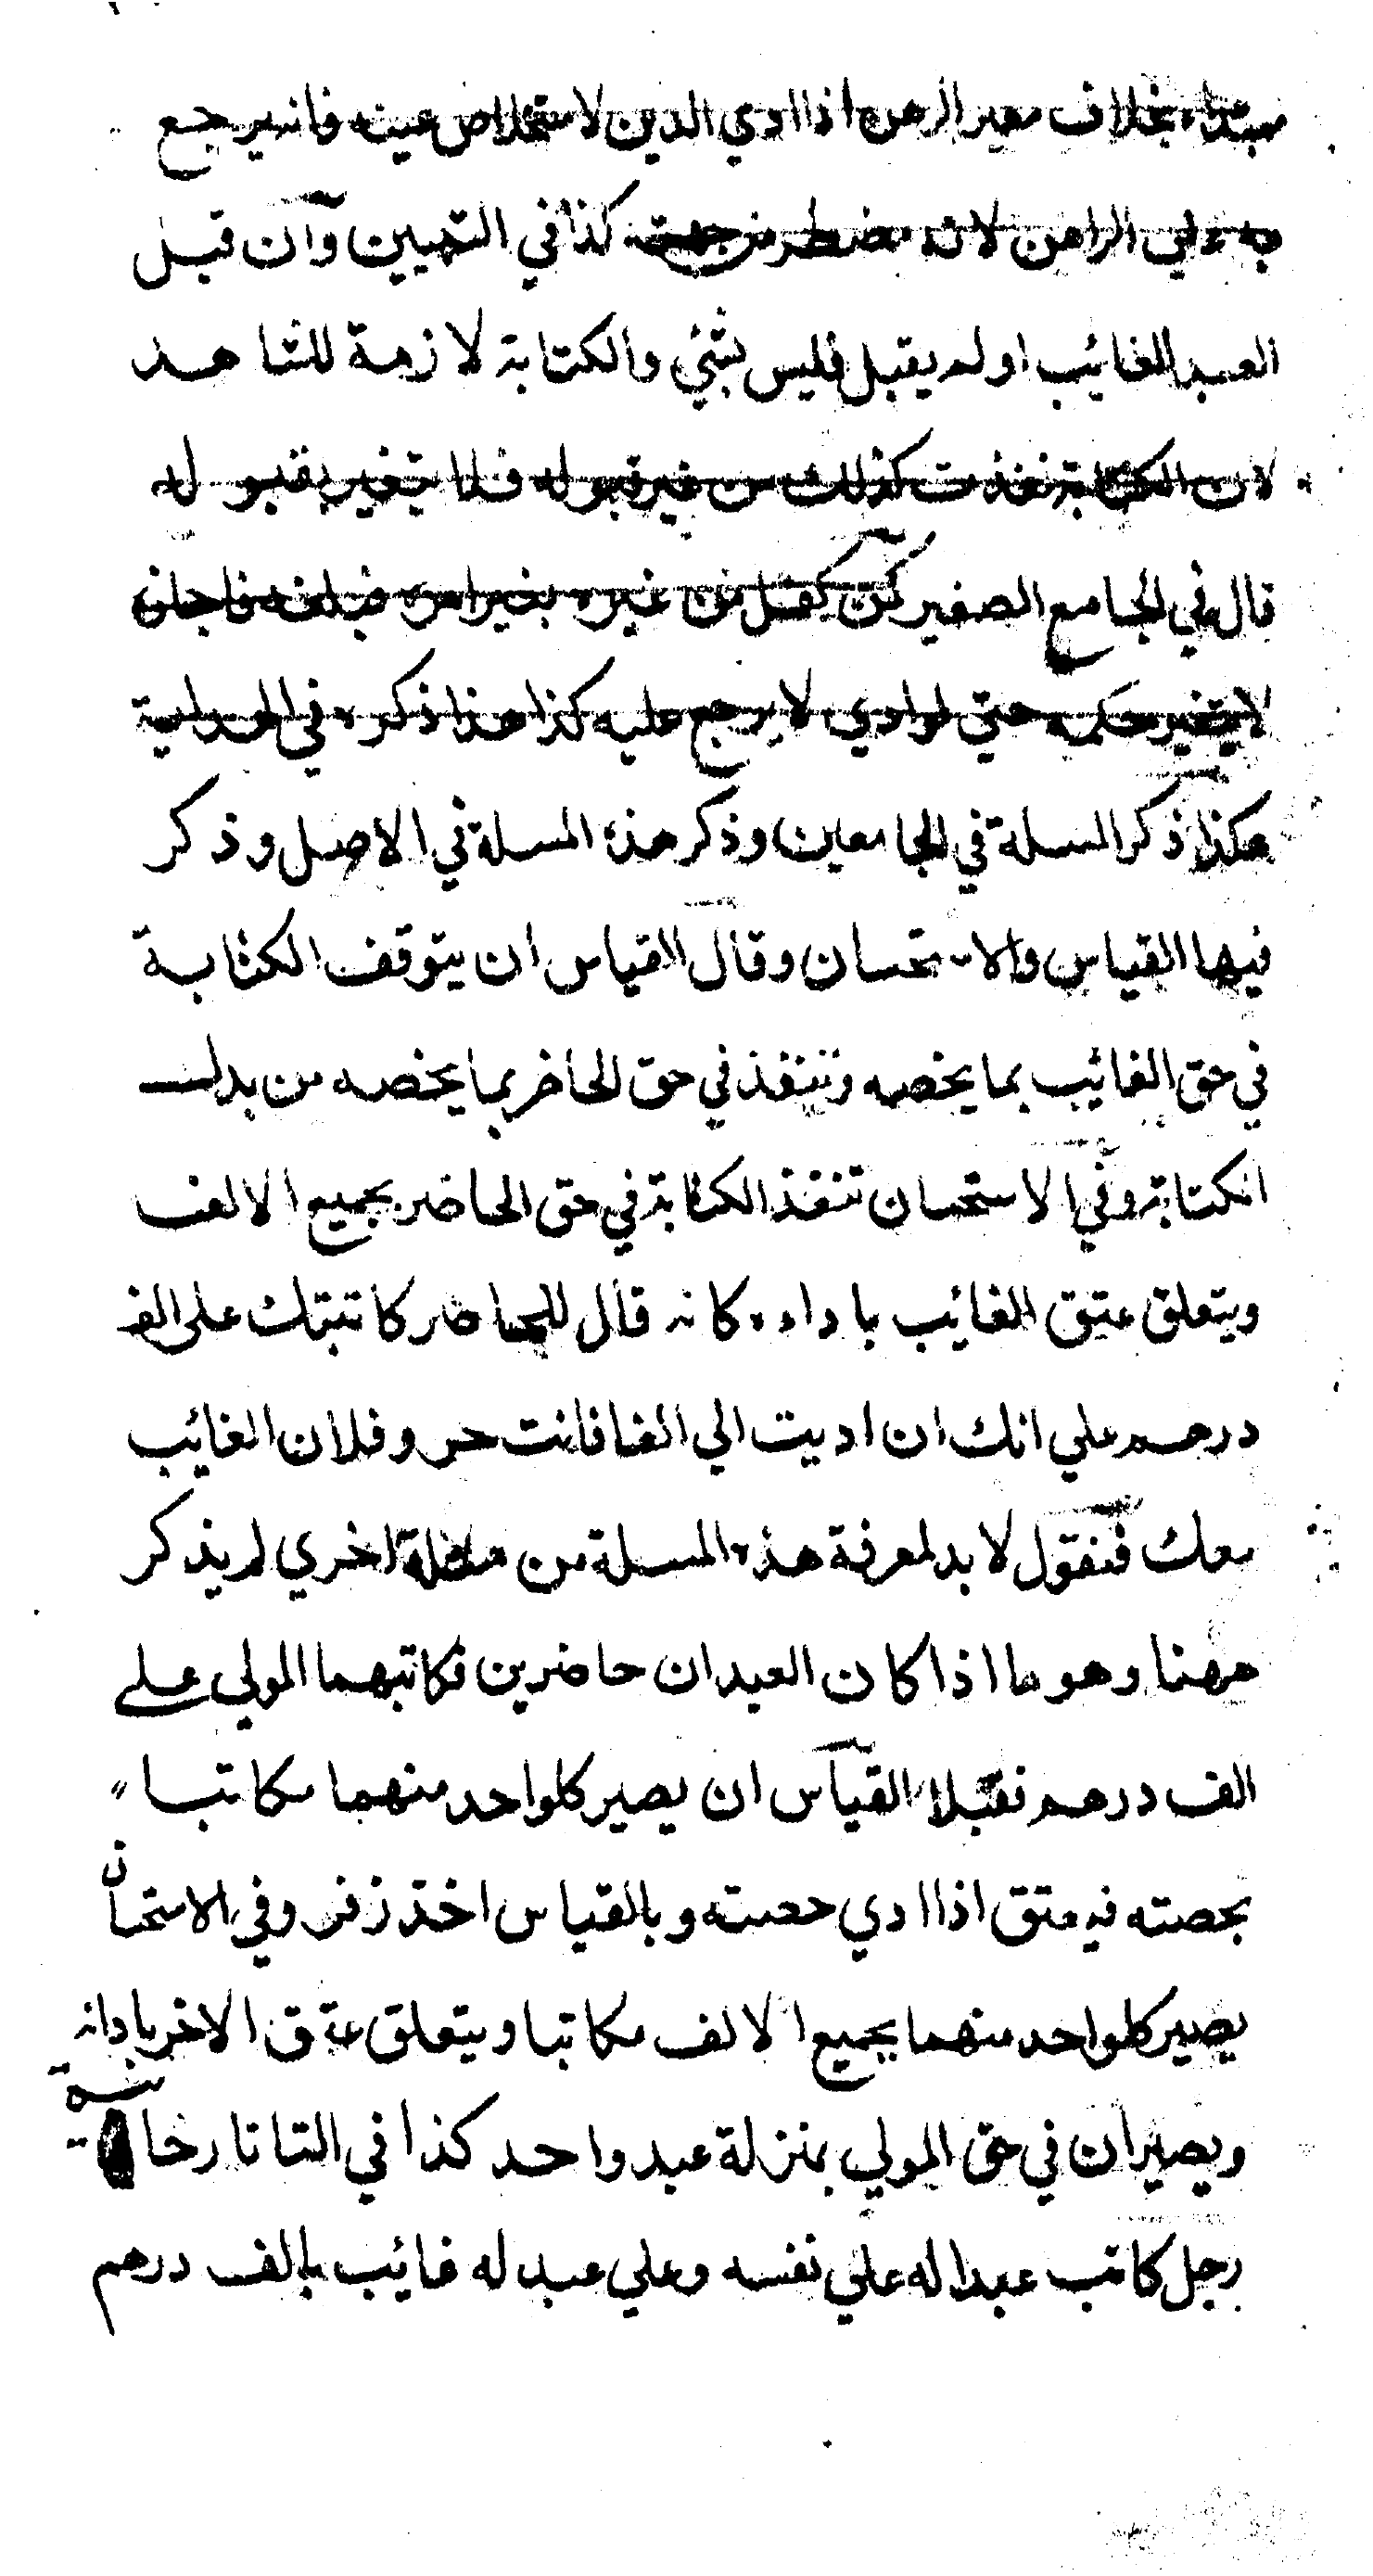 مبتداء بخلاف معير الرهن اذا ادي الدين لاستخلاص عينه فانه يرجع
به علي الراهن لانه مضطر من جهته كذا في التبيين وان قبل
العبد الغائب او لم يقبل فليس بشئ والكتابة لازمة للشاهد
لان الكتابة نفذت كذلك من غير قبوله فلا تتغير بقبوله
قال في الجامع الصغير كمن كفل من غيره بغير امره فبلغه فاجازه
لا يتغير حكمه حتي لو ادي لا يرجع عليه كذا هذا ذكره في الهداية
هكذا ذكر المسلة في الجامعين وذكر هذه المسلة في الاصل وذكر
فيها القياس والاستحسان وقال القياس ان يتوقف الكتابة
في حق الغائب بما يخصه وتنفذ في حق الحاضر بما يخصه من بدل
الكتابة وفي الاستحسان تنفذ الكتابة في حق الحاضر بجميع الالف
ويتعلق عتق الغائب باداءه كانه قال للحاضر كاتبتك علي الف
درهم علي انك ان اديت الي الفا فانت حر وفلان الغائب
معك فنقول لا بد لمعرفة هذه المسلة من مسئلة اخري لم يذكر
ههنا وهو ما اذا كان العبدان حاضرين فكاتبهما المولي علي
الف درهم فقبلا القياس ان يصير كلواحد منهما مكاتبا
بحصته فيعتق اذا ادي حصته وبالقياس اخذ زفر وفي الاستحسان
يصير كلواحد منهما بجميع الالف مكاتبا ويتعلق عتق الاخر بادائه
ويصيران في حق المولي بمنزلة عبد واحد كذا في التاتارخانية
رجل كاتب عبدا له علي نفسه وعلي عبد له غائب بالف درهم